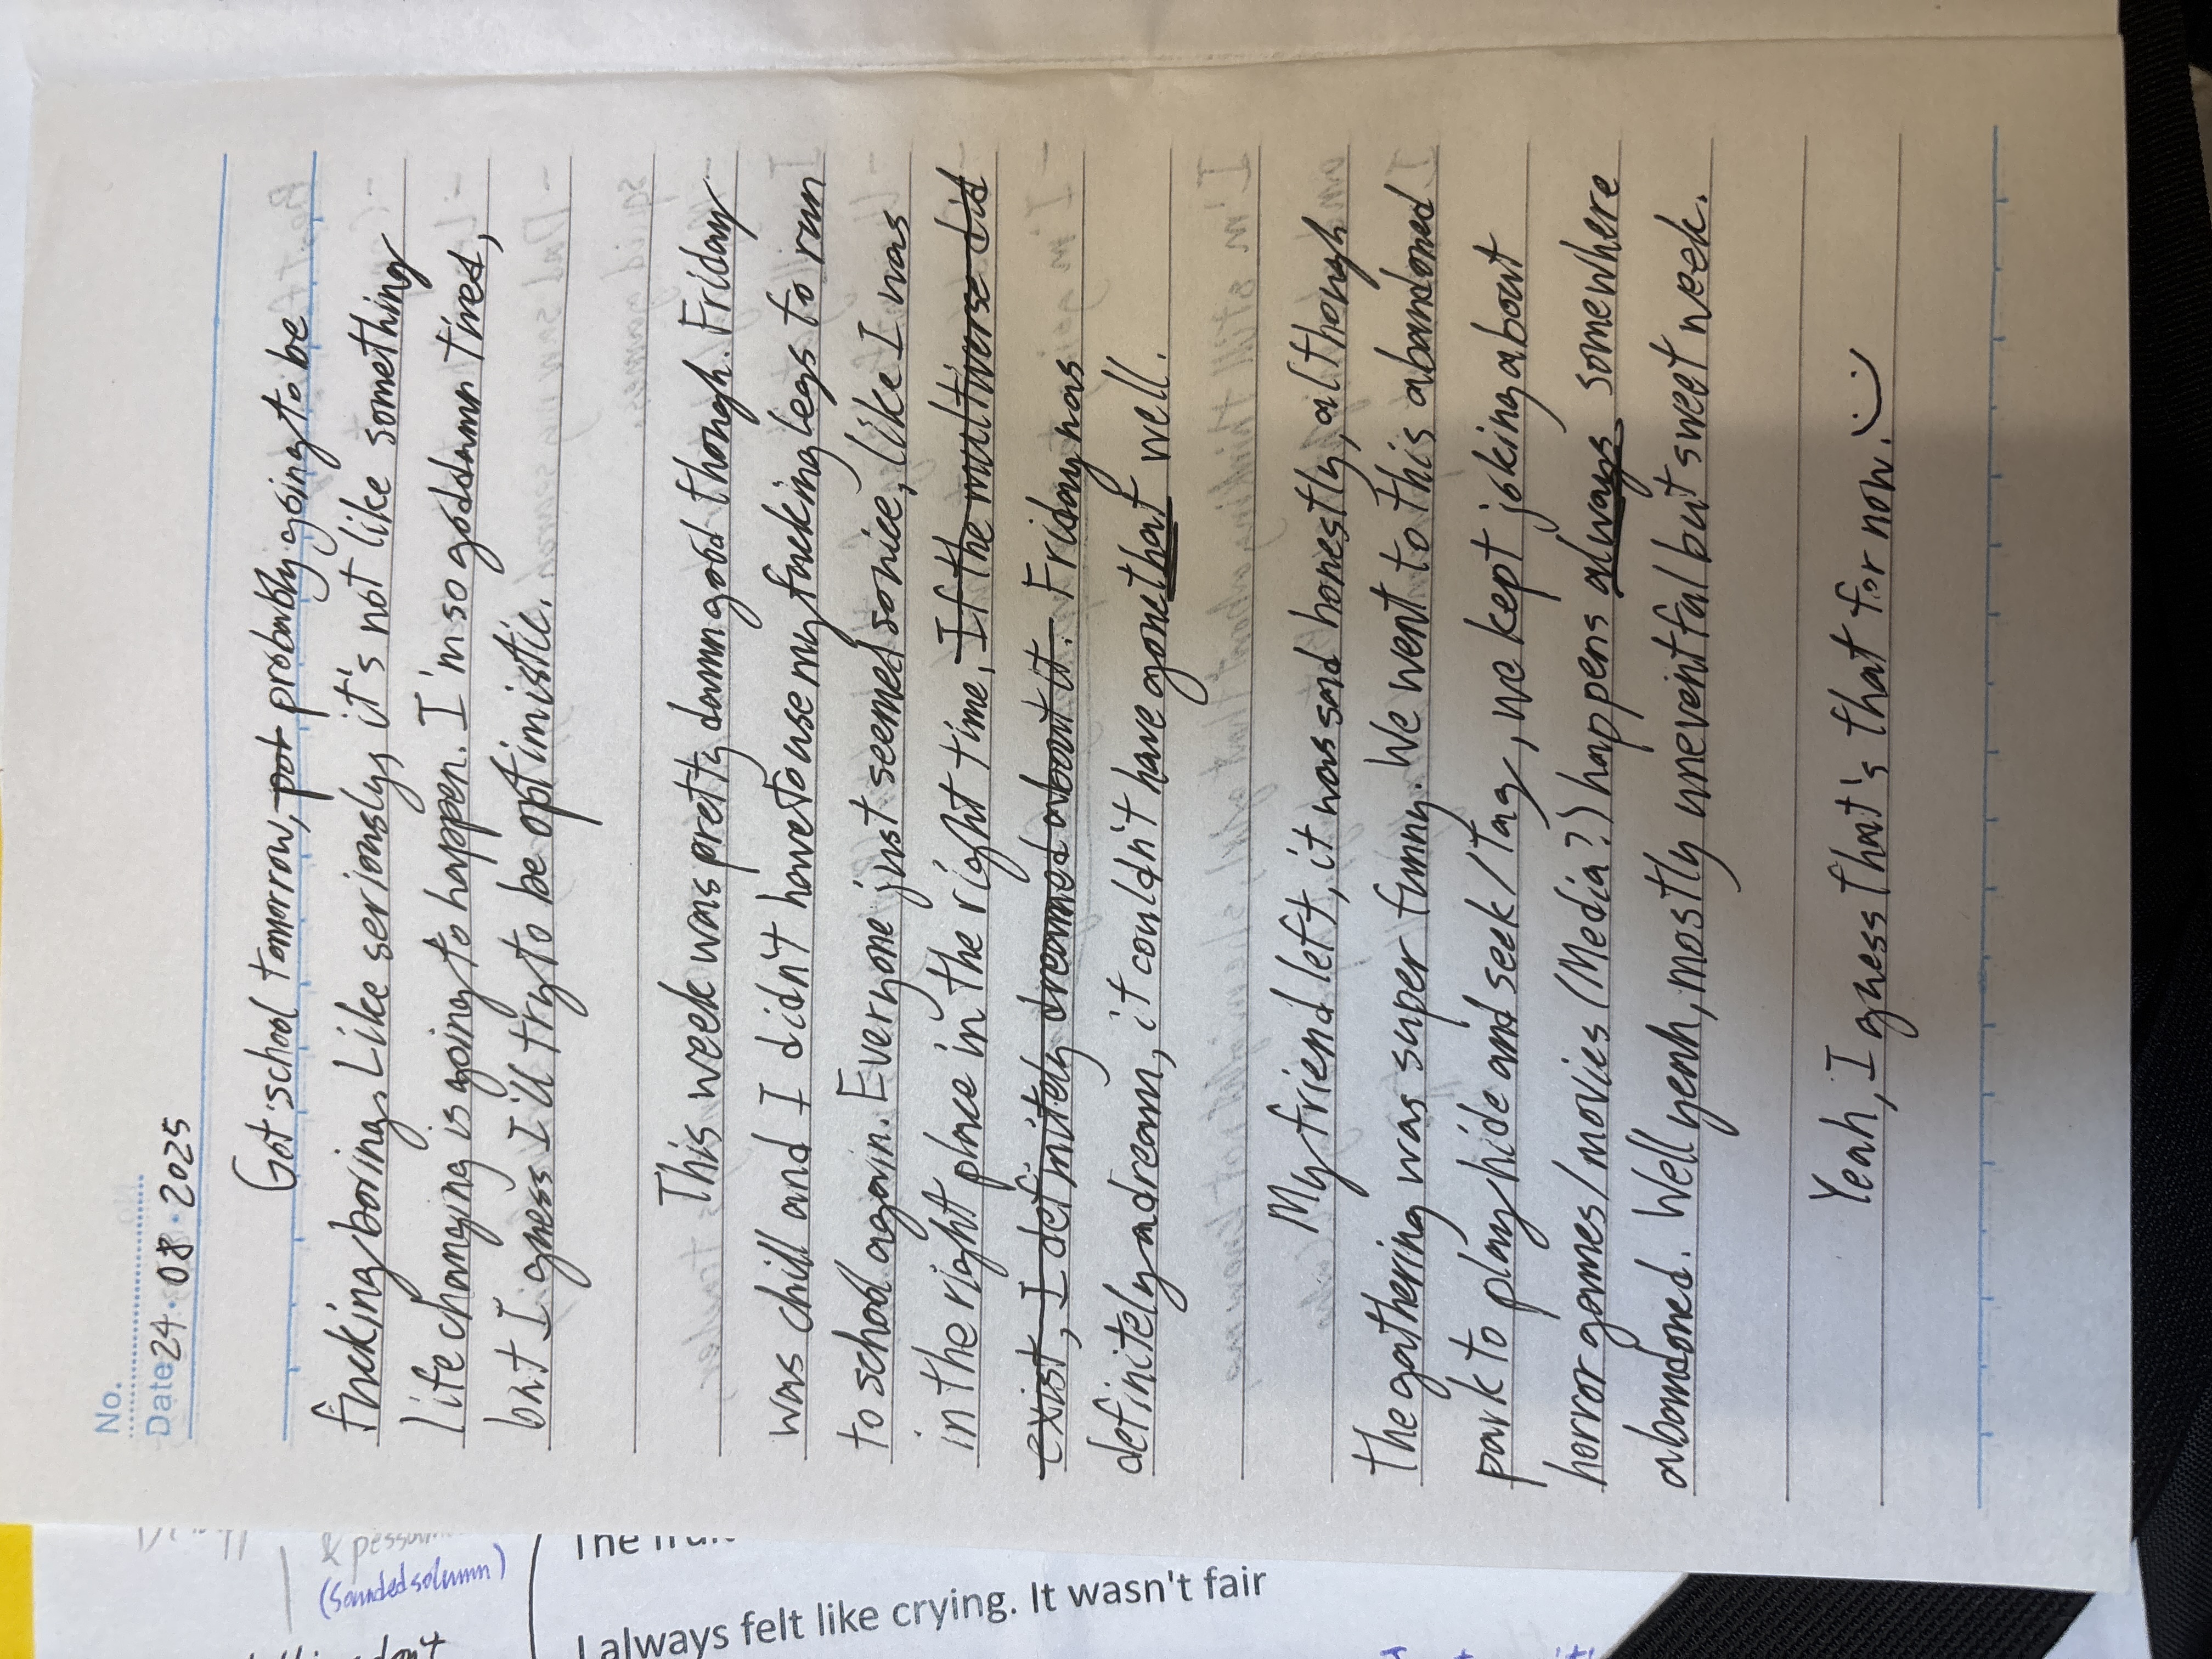 No.
Date 24.08.2025
Got school tomorrow, por probably going to be
fucking boring. Like seriously it's not like something
life changing is going to happen. I'm so goddamn tired,
but I guess I'll try to be optimistic.
This week was pretty damn good though. Friday
was chill and I didn't have to use my fucking legs to run
to school again. Everyone just seemed so nice, like I was
in the right place in the right time, If the multiverse did
exist, I definitely dreamed about it. Friday was
definitely a dream, it couldn't have gone that well.
My friend left, it was sad honestly, although
the gathering was super funny. We went to this abandoned
park to play hide and seek/tag, we kept joking about
horror games/movies (Media?) happens always somewhere
abandoned. Well yeah, mostly uneventful but sweet week.
Yeah, I guess that's that for now. :)
(Sounded solumn)
I always felt like crying. It wasn't fair